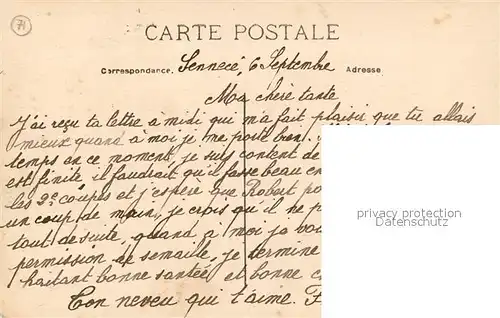 71
CARTE POSTALE
Correspondance. Sennecé, 6 Septembre Adresse
Ma chère tante
J'ai reçu ta lettre à midi qui m'a fait plaisir que tu allais
mieux quand à moi je me porte bien.
temps en ce moment, je suis content de
est finite il faudrait qu'il fasse beau
les 2e coupes et j'espère que Robert
un coup de main, je crois qu'il ne
tout de suite, quand à moi je
permission de semaille, je termine
haitant bonne santée et bonne
Ton neveu qui t'aime.
privacy protection
Datenschutz